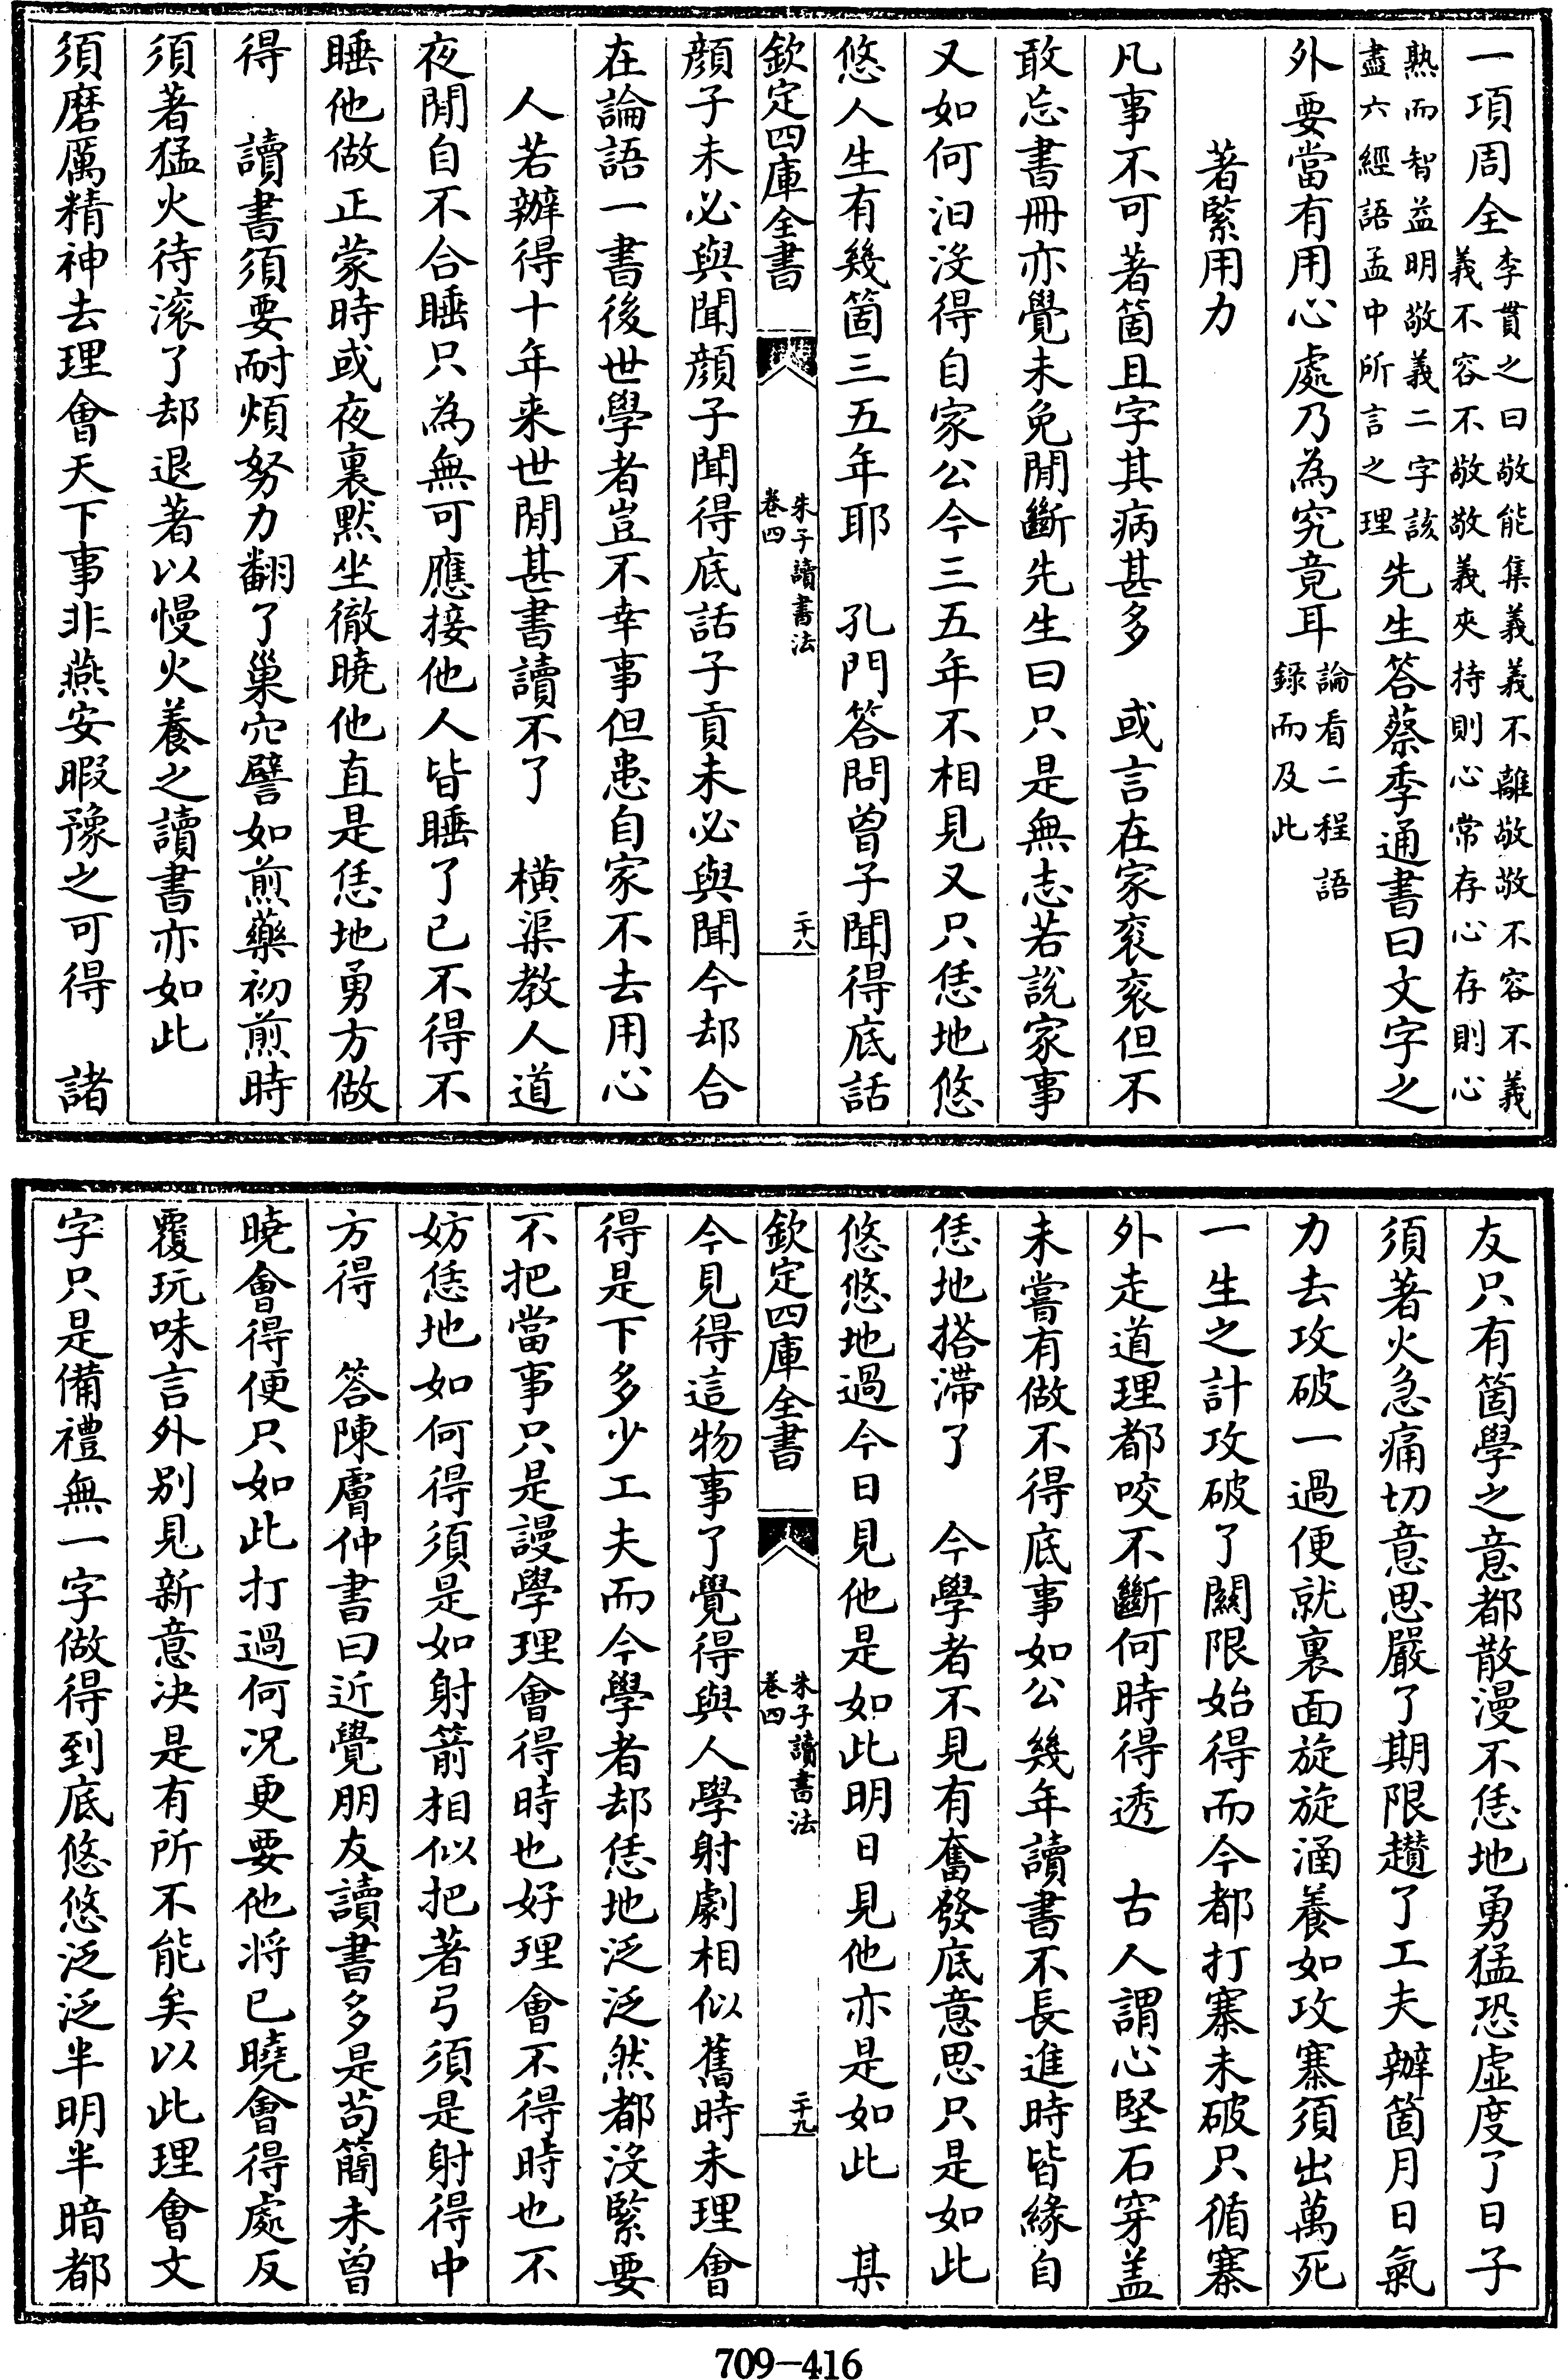 一項周全李貫之曰敬能集義義不離敬敬不容不義
義不容不敬敬義夾持則心常存心存則心
熟而智益明敬義二字該
盡六經語孟中所言之理先生答蔡季通書曰文字之
外要當有用心處乃為究竟耳論看二程語
録而及此
著緊用力
凡事不可著箇且字其病甚多　或言在家衮衮但不
敢忘書冊亦覺未免閒斷先生曰只是無志若說家事
又如何汩沒得自家公今三五年不相見又只恁地悠
悠人生有幾箇三五年耶　孔門答問曾子聞得底話
欽定四庫全書　朱子讀書法
卷四　二十八
顔子未必與聞顔子聞得底話子貢未必與聞今却合
在論語一書後世學者豈不幸事但患自家不去用心
人若辦得十年来世閒甚書讀不了　橫渠教人道
夜閒自不合睡只為無可應接他人皆睡了已不得不
睡他做正蒙時或夜裏默坐徹曉他直是恁地勇方做
得　讀書須要耐煩努力翻了巢穴譬如煎藥初煎時
須著猛火待滚了却退著以慢火養之讀書亦如此
須磨厲精神去理會天下事非燕安暇豫之可得　諸
友只有箇學之意都散漫不恁地勇猛恐虚度了日子
須著火急痛切意思嚴了期限趲了工夫辦箇月日氣
力去攻破一過便就裏面旋旋涵養如攻寨須出萬死
一生之計攻破了關限始得而今都打寨未破只循寨
外走道理都咬不斷何時得透　古人謂心堅石穿盖
未嘗有做不得底事如公幾年讀書不長進時皆緣自
恁地搭滯了　今學者不見有奮發底意思只是如此
悠悠地過今日見他是如此明日見他亦是如此　某
欽定四庫全書　朱子讀書法
卷四　二十九
今見得這物事了覺得與人學射劇相似舊時未理會
得是下多少工夫而今學者却恁地泛泛然都沒緊要
不把當事只是謾學理會得時也好理會不得時也不
妨恁地如何得須是如射箭相似把著弓須是射得中
方得　答陳膚仲書曰近覺朋友讀書多是茍簡未曾
曉會得便只如此打過何况更要他将已曉會得處反
覆玩味言外别見新意决是有所不能矣以此理會文
字只是備禮無一字做得到底悠悠泛泛半明半暗都
709-416